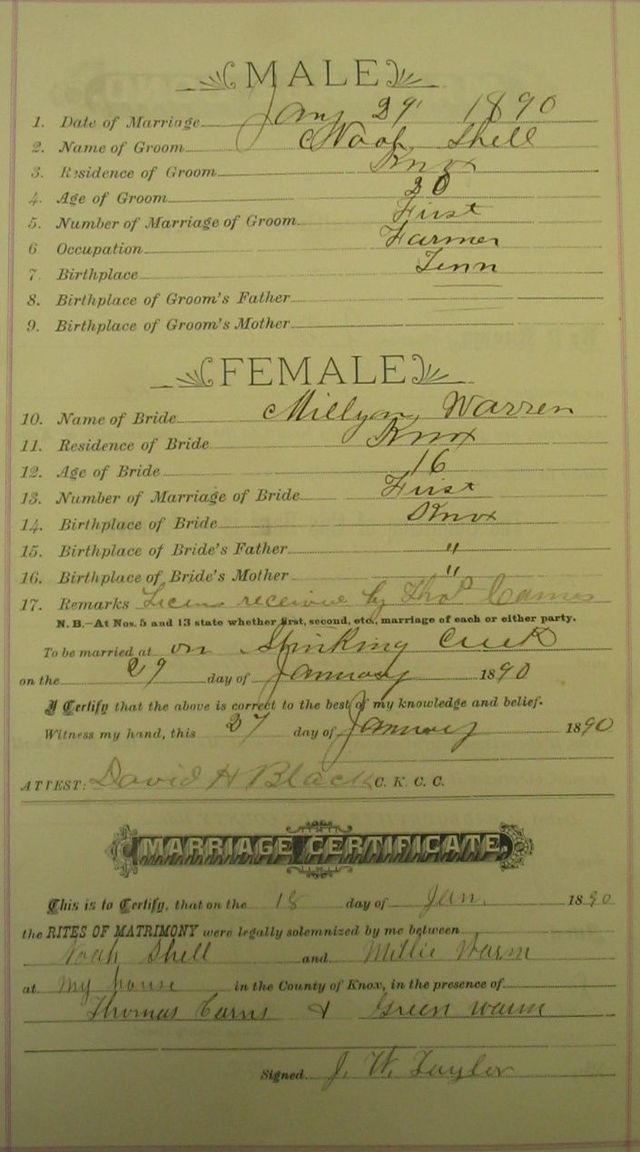 MALE
1. Date of Marriage Jany 29 1890
2. Name of Groom Noah Shell
3. Residence of Groom Knox
4. Age of Groom 20
5. Number of Marriage of Groom First
6 Occupation Farmer
7. Birthplace Tenn
8. Birthplace of Groom's Father
9. Birthplace of Groom's Mother
FEMALE
10. Name of Bride Warren
11. Residence of Bride Knox
12. Age of Bride 16
13. Number of Marriage of Bride First
14. Birthplace of Bride Knox
15. Birthplace of Bride's Father "
16. Birthplace of Bride's Mother "
17. Remarks by Thos
N. B.—At Nos. 5 and 13 state whether first, second, etc., marriage of each or either party.
To be married at on Stinking Creek
on the 29 day of January 1890
I Certify that the above is correct to the best of my knowledge and belief.
Witness my hand, this 27 day of January 1890
ATTEST: David H Black C. K. C. C.
MARRIAGE CERTIFICATE.
This is to Certify, that on the 18 day of Jan. 1890
the RITES OF MATRIMONY were legally solemnized by me between
Noah Shell and Millie Warin
at my house in the County of Knox, in the presence of
Thomas Carns & Green
Signed J. W. Taylor